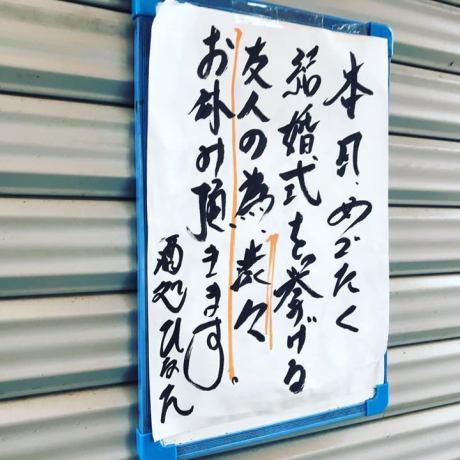 本日、めでたく
結婚式を挙げる
友人の為、悲々
お休み頂きます。
酒処ひなた